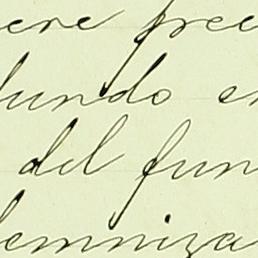 ere pree
fundo en
del fun
demniza